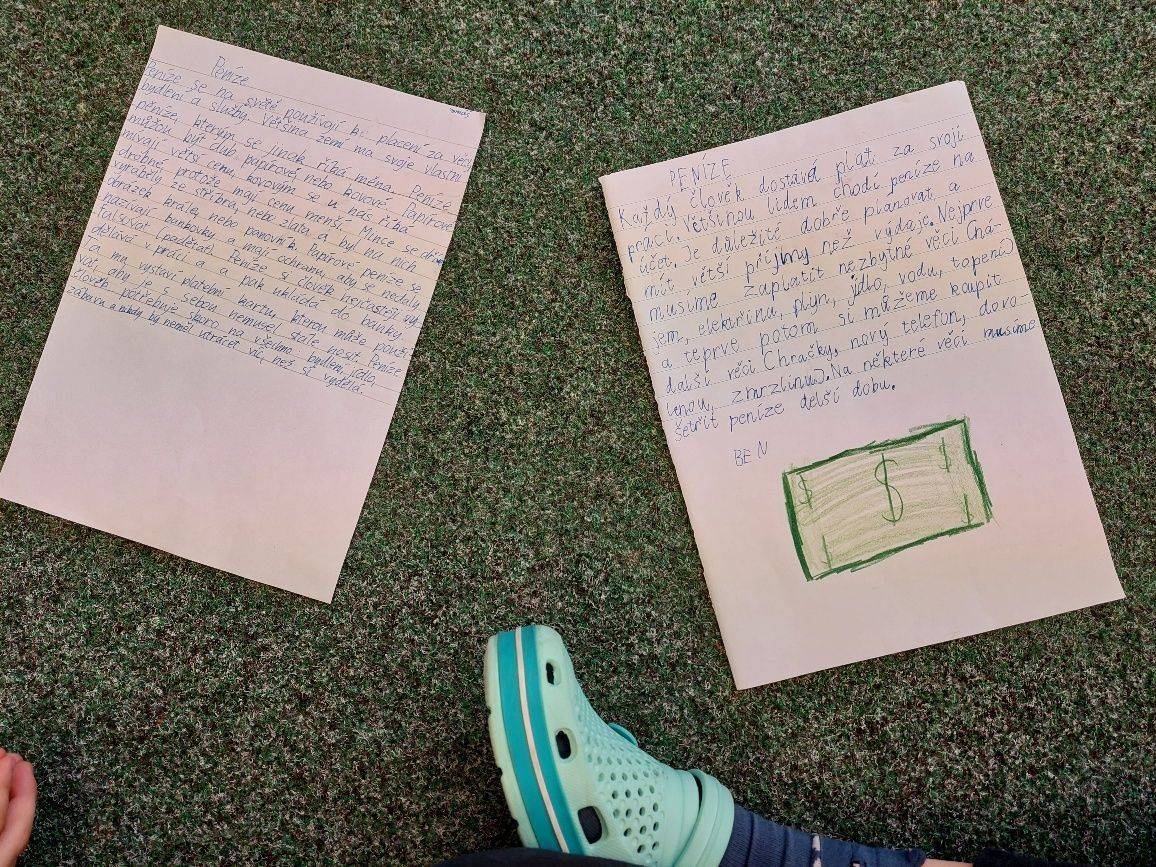 Peníze
Peníze se na světě používají ke placení za věci
bydlení a služby. Většina zemí má svoje vlastní
peníze, kterým se jinak říká měna. Peníze
můžou být buď papírové nebo kovové. Papírové
mívají větší cenu, kovovým se u nás říká
drobné, protože mají cenu menší. Mince se dříve
vyráběly ze stříbra, nebo zlata a byl na nich
obrázek krále, nebo panovník. Papírové peníze, se
nazívají bankovky a mají ochranu, aby se nedaly
falšovat (padělat). Peníze si člověk nejčastěji vy-
dělává v práci a a pak ukládá do banky.
Ta mu vystaví platební kartu, kterou může použí
vat, aby je s sebou nemusel stále nosit. Peníze
člověk potřebuje skoro na všechno, bydlení, jídlo,
zábavu a nikdy by neměl utrácet víc, než si vydělá.
PENÍZE
Každý člověk dostává plat za svoji
práci. Většinou lidem chodí peníze na
účet. Je důležité dobře plánovat a
mít větší příjmy než výdaje. Nejprve
musíme zaplatit nezbytné věci (ná-
jem, elektřinu, plyn, jídlo, vodu, topení)
a teprve potom si můžeme koupit
další věci (hračky, nový telefon, dovo-
lenou, zmrzlinu). Na některé věci musíme
šetřit peníze delší dobu.
BEN
$ $ $
$ $